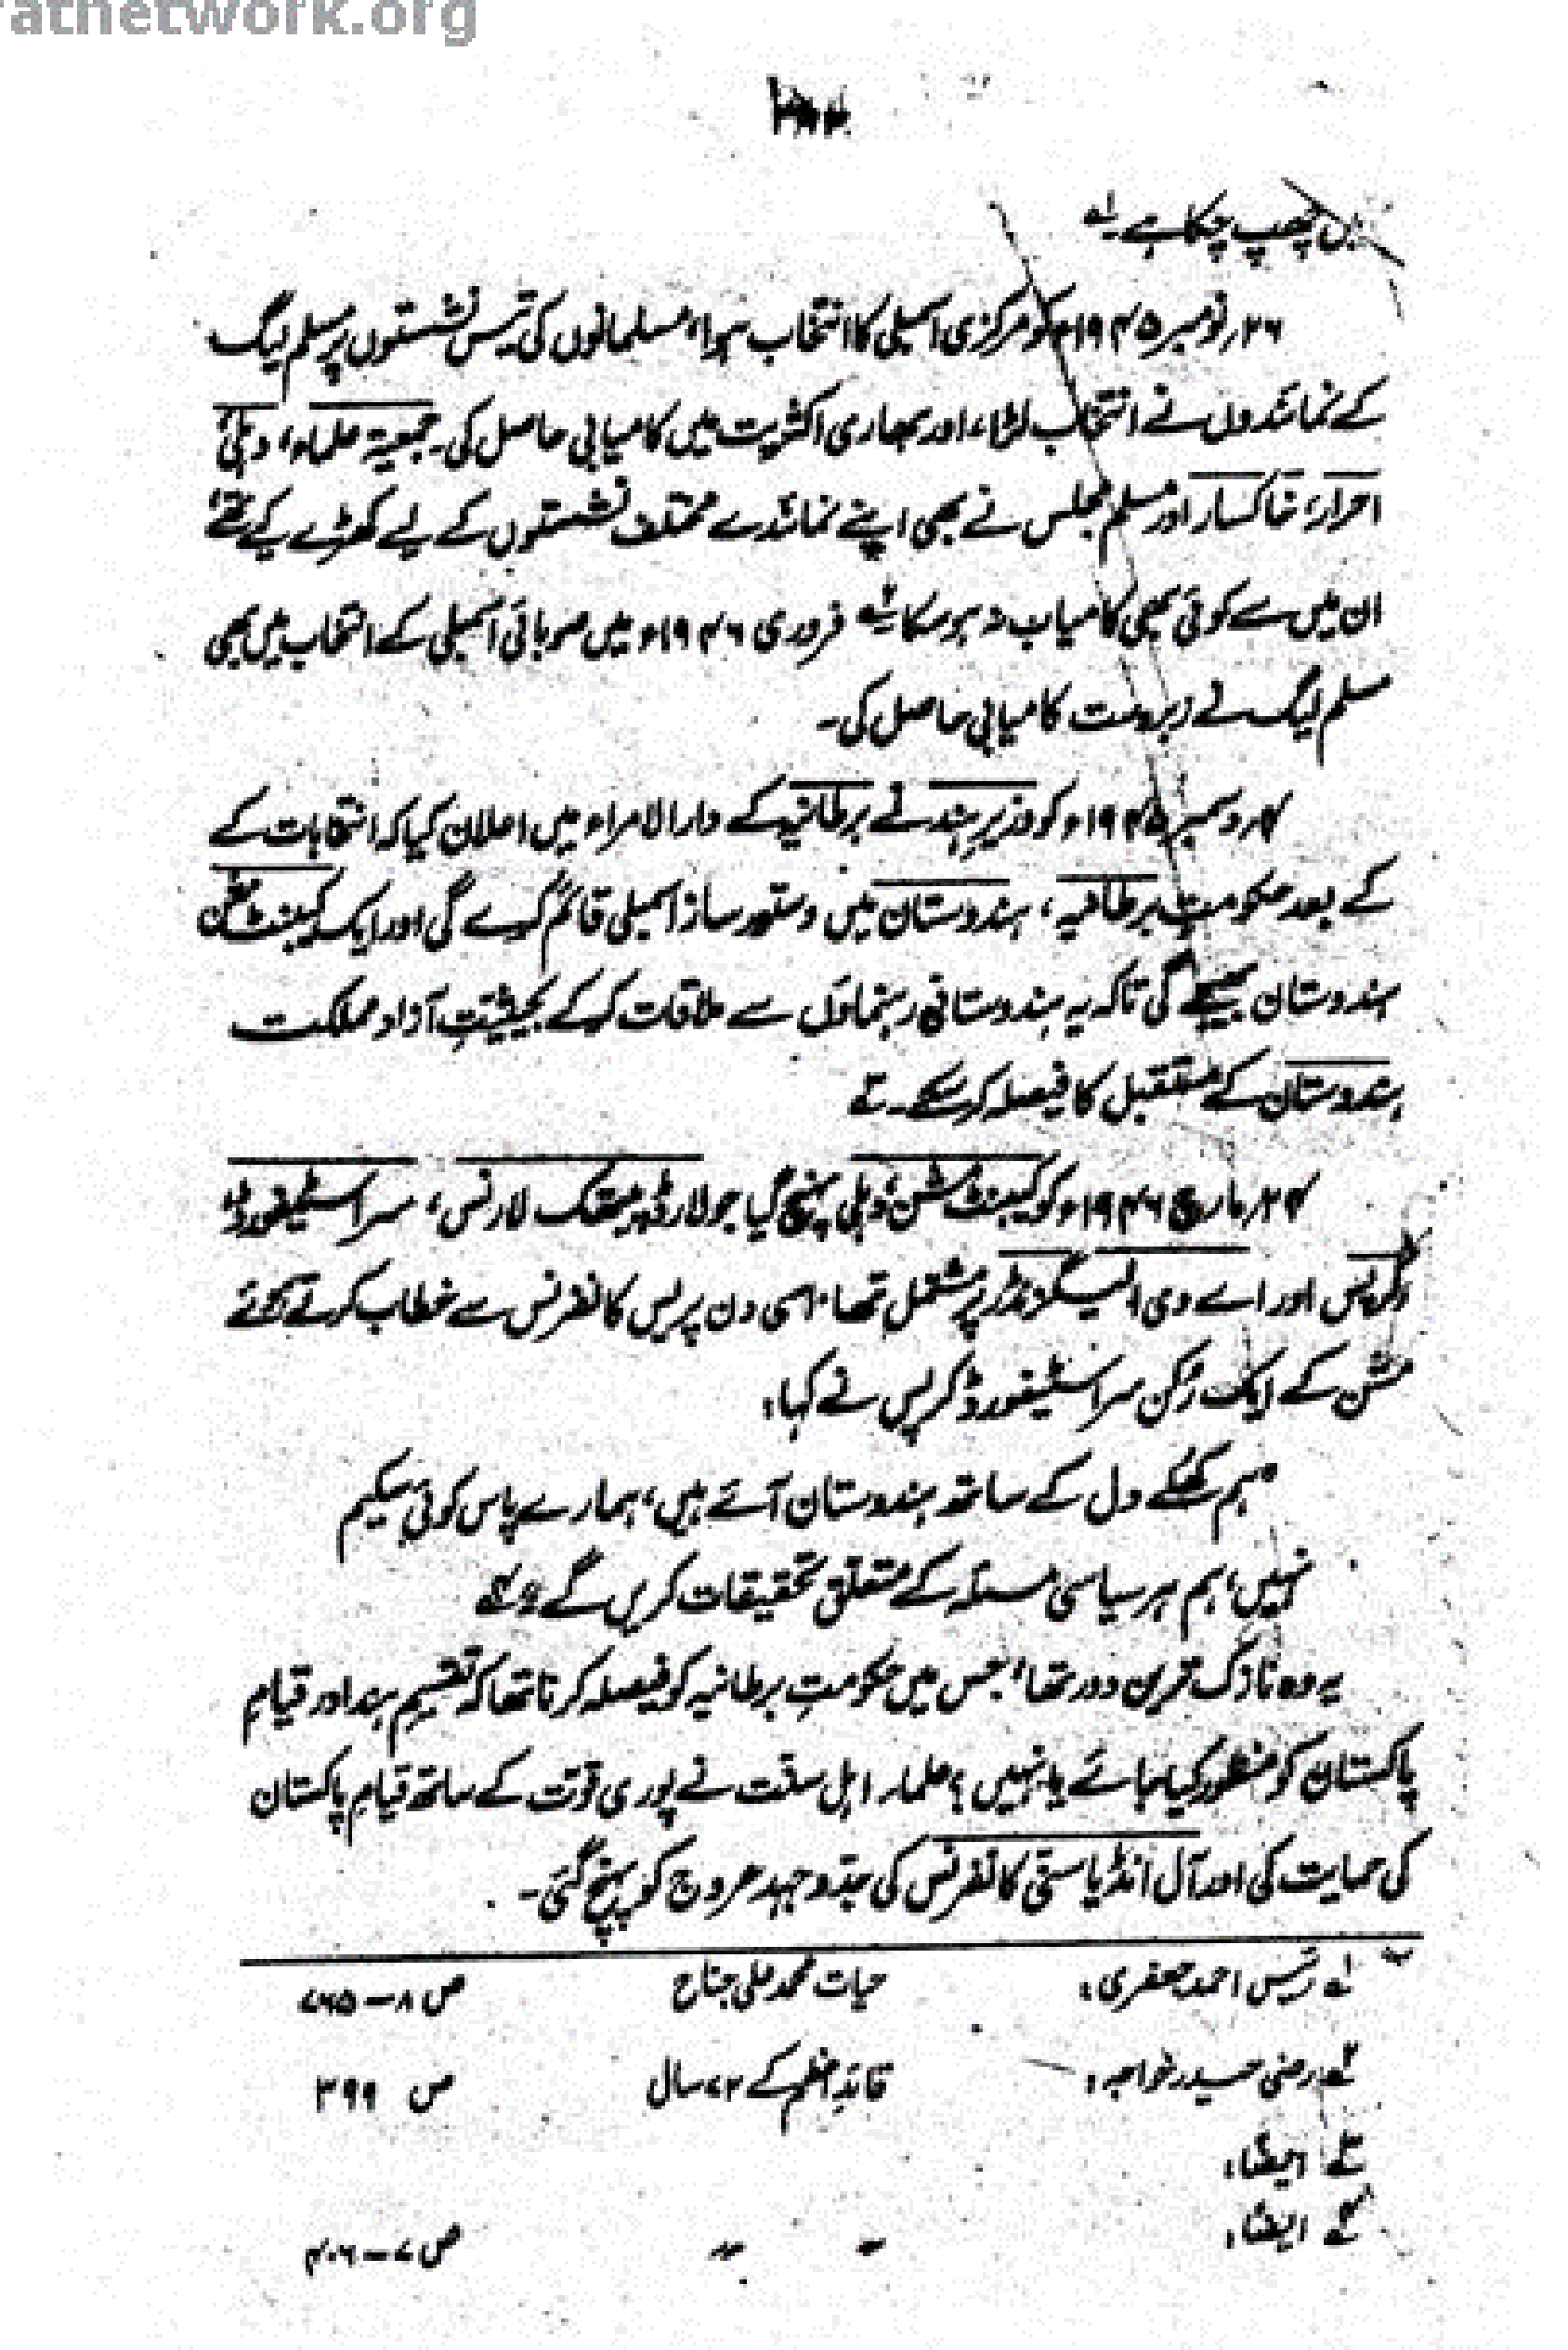 rathetwork.org
چھپ چکا ہے۔ ۱ے
۲۶؍ نومبر ۱۹۴۵ء کو مرکزی اسمبلی کا انتخاب ہوا، مسلمانوں کی تیس نشستوں پر مسلم لیگ
کے نمائندوں نے انتخاب لڑا، اور بھاری اکثریت میں کامیابی حاصل کی۔ جمعیۃ علماء، دہلی،
احرار، خاکسار اور مسلم مجلس نے بھی اپنے نمائندے مختلف نشستوں کے لیے کھڑے کیے تھے،
ان میں سے کوئی بھی کامیاب نہ ہو سکا۔ ۲ے فروری ۱۹۴۶ء میں صوبائی اسمبلی کے انتخاب میں بھی
مسلم لیگ نے زبردست کامیابی حاصل کی۔
۴؍ دسمبر ۱۹۴۵ء کو وزیرِ ہند نے برطانیہ کے دارالامراء میں اعلان کیا کہ انتخابات کے
کے بعد حکومتِ برطانیہ، ہندوستان میں دستور ساز اسمبلی قائم کرے گی اور ایک کیبنٹ مشن
ہندوستان بھیجے گی تاکہ یہ ہندوستانی رہنماؤں سے ملاقات کر کے بحیثیتِ آزاد مملکت
ہندوستان کے مستقبل کا فیصلہ کر سکے۔ ۳ے
۲۴؍ مارچ ۱۹۴۶ء کو کیبنٹ مشن، دہلی پہنچ گیا جو لارڈ پیتھک لارنس، سر اسٹیفورڈ
کرپس اور اے وی الیگزنڈر پر مشتمل تھا۔ اسی دن پریس کانفرنس سے خطاب کرتے ہوئے
مشن کے ایک رکن سر اسٹیفورڈ کرپس نے کہا:
"ہم کھلے دل کے ساتھ ہندوستان آئے ہیں، ہمارے پاس کوئی سکیم
نہیں، ہم ہر سیاسی مسئلہ کے متعلق تحقیقات کریں گے" ۴ے
یہ وہ نازک ترین دور تھا، جس میں حکومتِ برطانیہ کو فیصلہ کرنا تھا کہ تقسیمِ ہند اور قیامِ
پاکستان کو منظور کیا جائے یا نہیں؟ علماء اہل سنت نے پوری قوت کے ساتھ قیامِ پاکستان
کی حمایت کی اور آل انڈیا سنی کانفرنس کی جدوجہد عروج کو پہنچ گئی۔
۱ے رئیس احمد جعفری: حیات محمد علی جناح ص ۸ – ۷۶۵
۲ے رضی حیدر خواجہ: قائدِ اعظم کے ۷۲ سال ص ۳۹۹
۳ے ایضاً:
۴ے ایضاً: " " ص ۷ – ۴۰۶